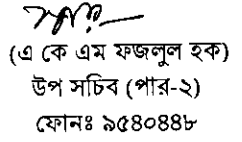 (এ কে এম ফজলুল হক)
উপ সচিব (পার-২)
ফোনঃ ৯৫৪০৪৪৮